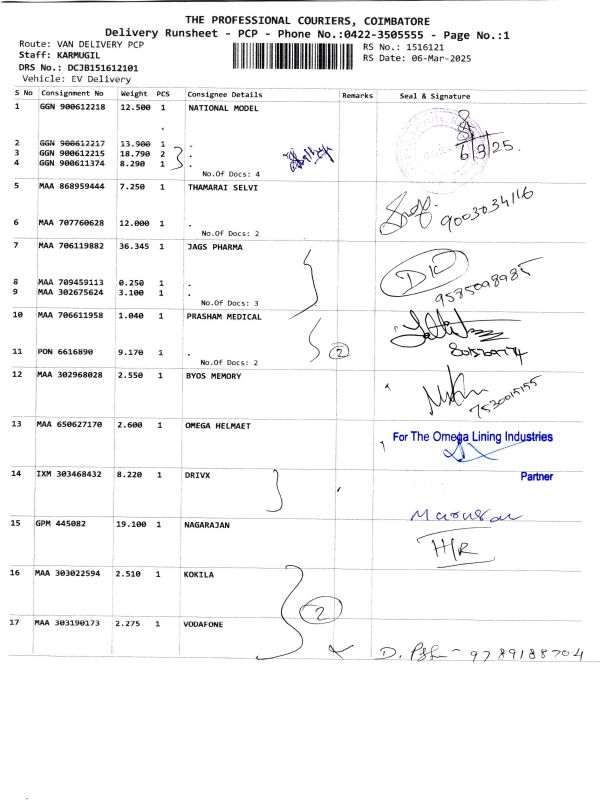 THE PROFESSIONAL COURIERS, COIMBATORE
Delivery Runsheet - PCP - Phone No.:0422-3505555 - Page No.:1
Route: VAN DELIVERY PCP RS No.: 1516121
Staff: KARMUGIL RS Date: 06-Mar-2025
DRS No.: DCJB151612101
Vehicle: EV Delivery
S No Consignment No Weight PCS Consignee Details Remarks Seal & Signature
1 GGN 900612218 12.500 1 NATIONAL MODEL
2 GGN 900612217 13.900 1 .
3 GGN 900612215 18.790 2 . 6/3/25.
4 GGN 900611374 8.290 1 .
No.Of Docs: 4
5 MAA 868959444 7.250 1 THAMARAI SELVI
9003034116
6 MAA 707760628 12.000 1 .
No.Of Docs: 2
7 MAA 706119882 36.345 1 JAGS PHARMA
8 MAA 709459113 0.250 1 .
9 MAA 302675624 3.100 1 . 9585098985
No.Of Docs: 3
10 MAA 706611958 1.040 1 PRASHAM MEDICAL
11 PON 6616890 9.170 1 . 2
No.Of Docs: 2
12 MAA 302968028 2.550 1 BYOS MEMORY
7530015155
13 MAA 650627170 2.600 1 OMEGA HELMAET
For The Omega Lining Industries
14 IXM 303468432 8.220 1 DRIVX Partner
15 GPM 445082 19.100 1 NAGARAJAN
H/R
16 MAA 303022594 2.510 1 KOKILA
2
17 MAA 303190173 2.275 1 VODAFONE
D. 9789188704